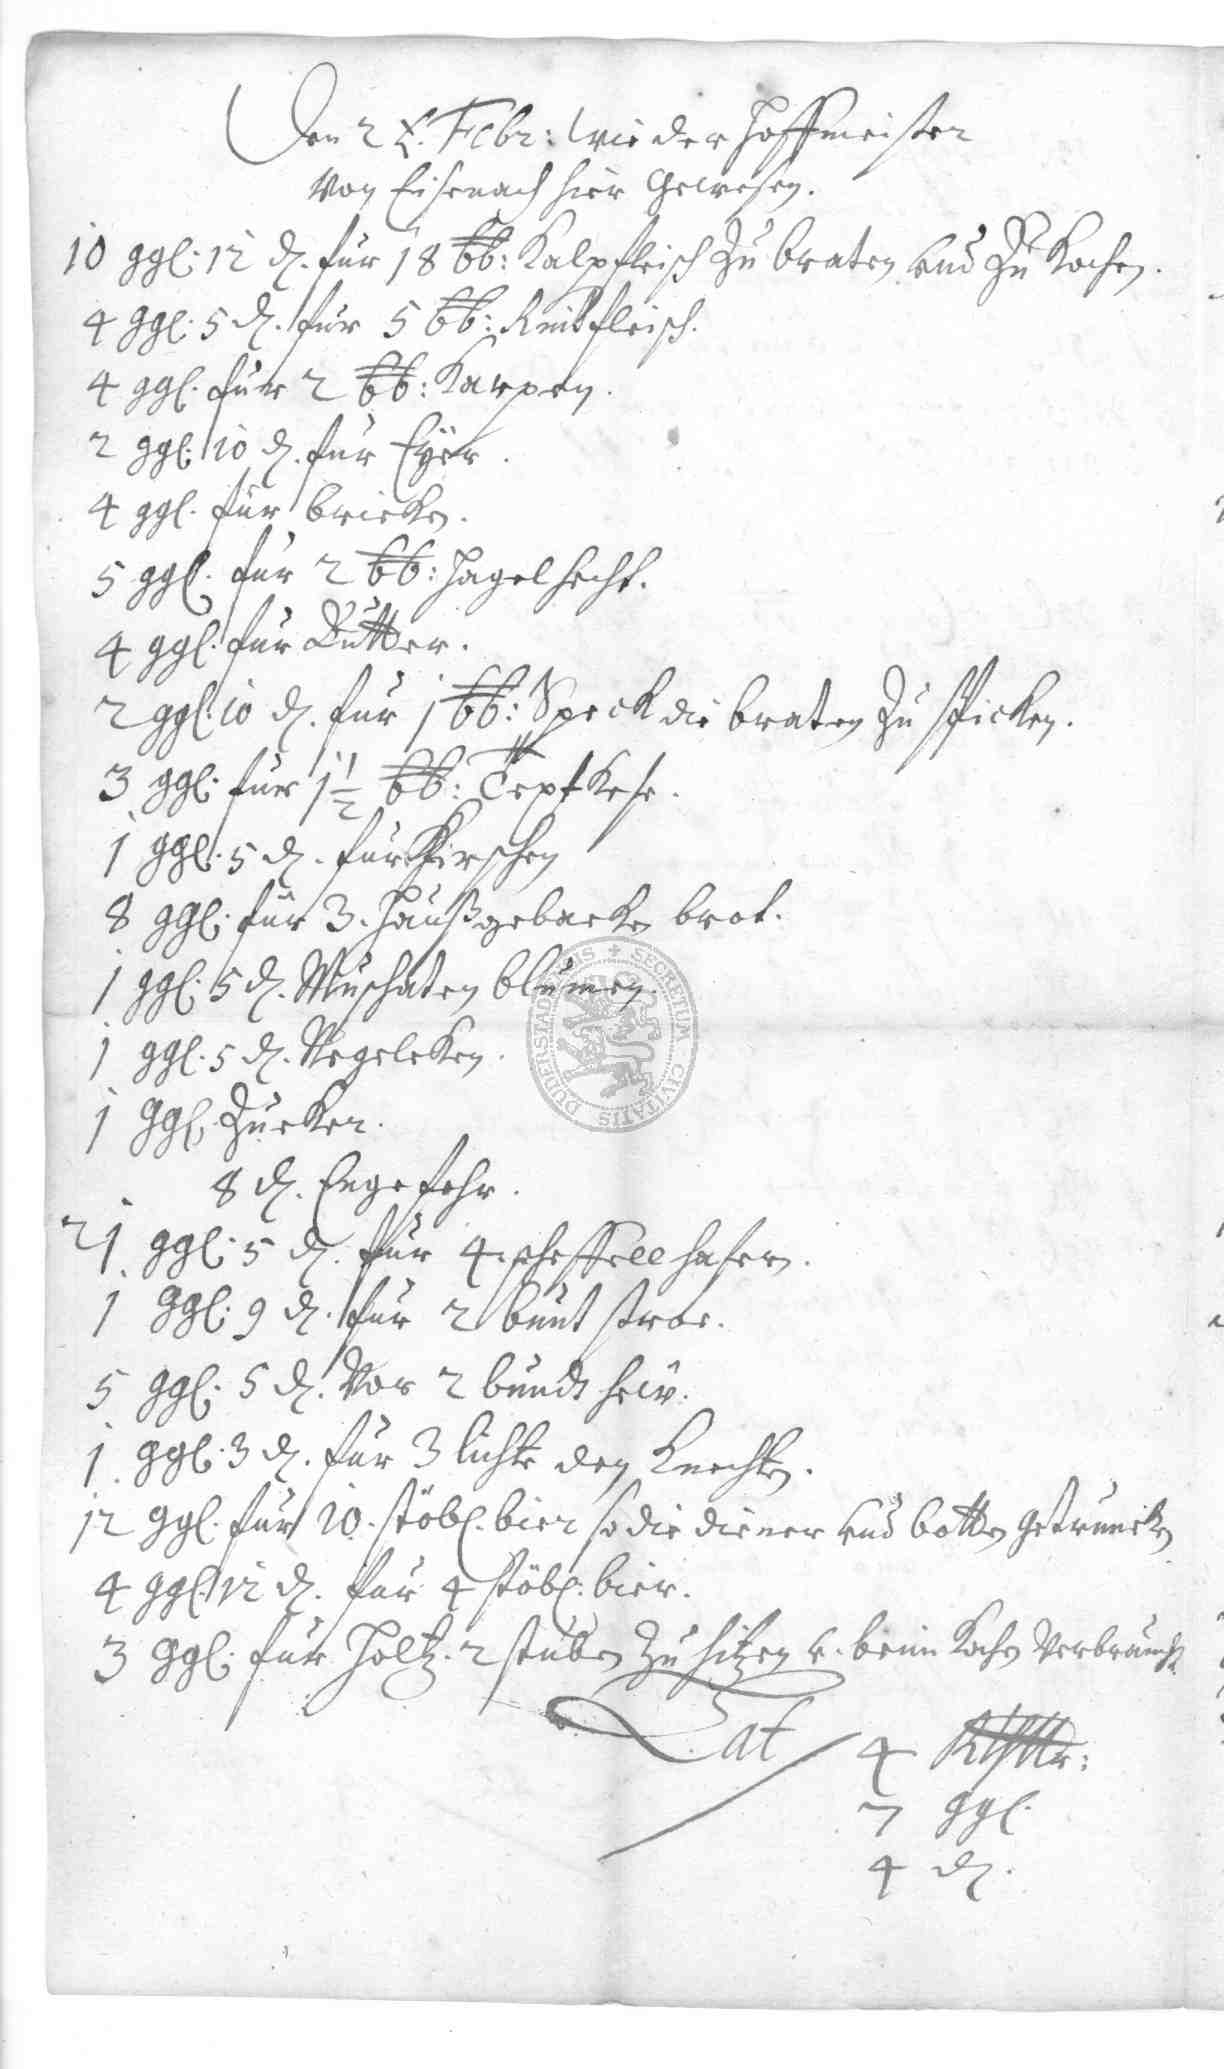 Den 2 X. Febr: wie der Hoffmeister
von Eisenach hier gewesen.
10 ggl: 12 d. für 18 lb: Kalpfleisch zu braten und zu Kochen.
4 ggl: 5 d. für 5 lb: Rintfleisch.
4 ggl. für 2 lb: Karpen.
2 ggl: 10 d. für Eÿer.
4 ggl. für bricken.
5 ggl. für 2 lb: Hagelhecht.
4 ggl. für Butter.
2 ggl: 10 d. für 1 lb: Speck die braten zu spicken.
3 ggl: für 1 1/2 lb: Tepfkese.
1 ggl: 5 d. für Kirschen
8 ggl: für 3. haußgebacken brot.
1 ggl: 5 d. Muschaten blumen.
1 ggl. 5 d. Negelcken.
1 ggl. Zucker.
8 d. Engefehr.
21 ggl: 5 d. für 4. scheffell hafern.
1 ggl: 9 d. für 2 bunt stroe.
5 ggl: 5 d. vor 2 bundt hew.
1 ggl: 3 d. für 3 lichte den Knechten.
12 ggl. für 10. stöbl. bier so die diener und botten getruncken
4 ggl. 12 d. für 4 stöbl. bier.
3 ggl: für Holtz. 2 stuben zu hitzen v. beim Kochen verbraucht
Lat 4 Rthlr:
7 ggl.
4 d.
DUDERSTADENSIS + SECRETUM CIVITATIS